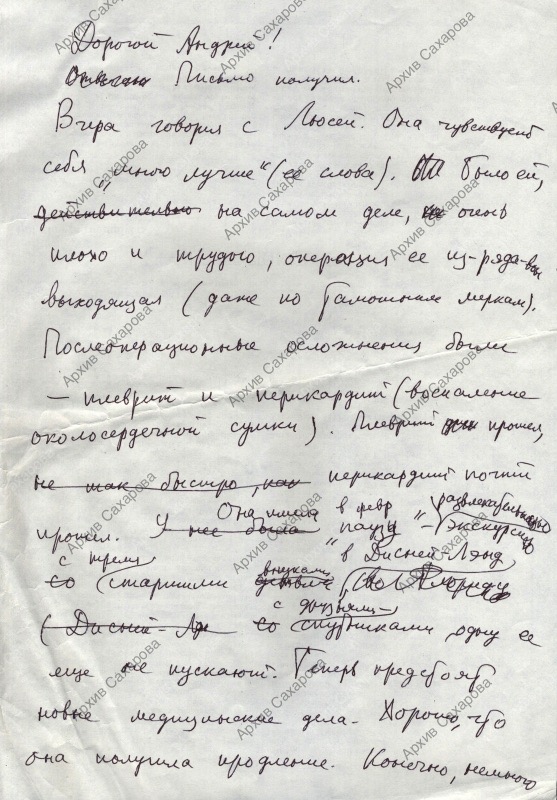 Дорогой Андрей!
Письмо получил.
Вчера говорил с Люсей. Она чувствует
себя „много лучше“ (ее слова). Было ей,
действительно на самом деле, очень
плохо и трудно, операция ее из-ряда-вон
выходящая (даже по тамошним меркам).
Послеоперационные осложнения были
– плеврит и перикардит (воспаление
околосердечной сумки). Плеврит прошел,
не так быстро, как перикардит почти
прошел. У нее была Она имела в февр паузу – развлекательную „экскурсию
с тремя со старшими внуками в Дисней-Лэнд во Флориду
(Дисней-Л со с друзьями-спутниками, одну ее
еще не пускают. Теперь предстоят
новые медицинские дела. Хорошо, что
она получила продление. Конечно, немного
Архив Сахарова